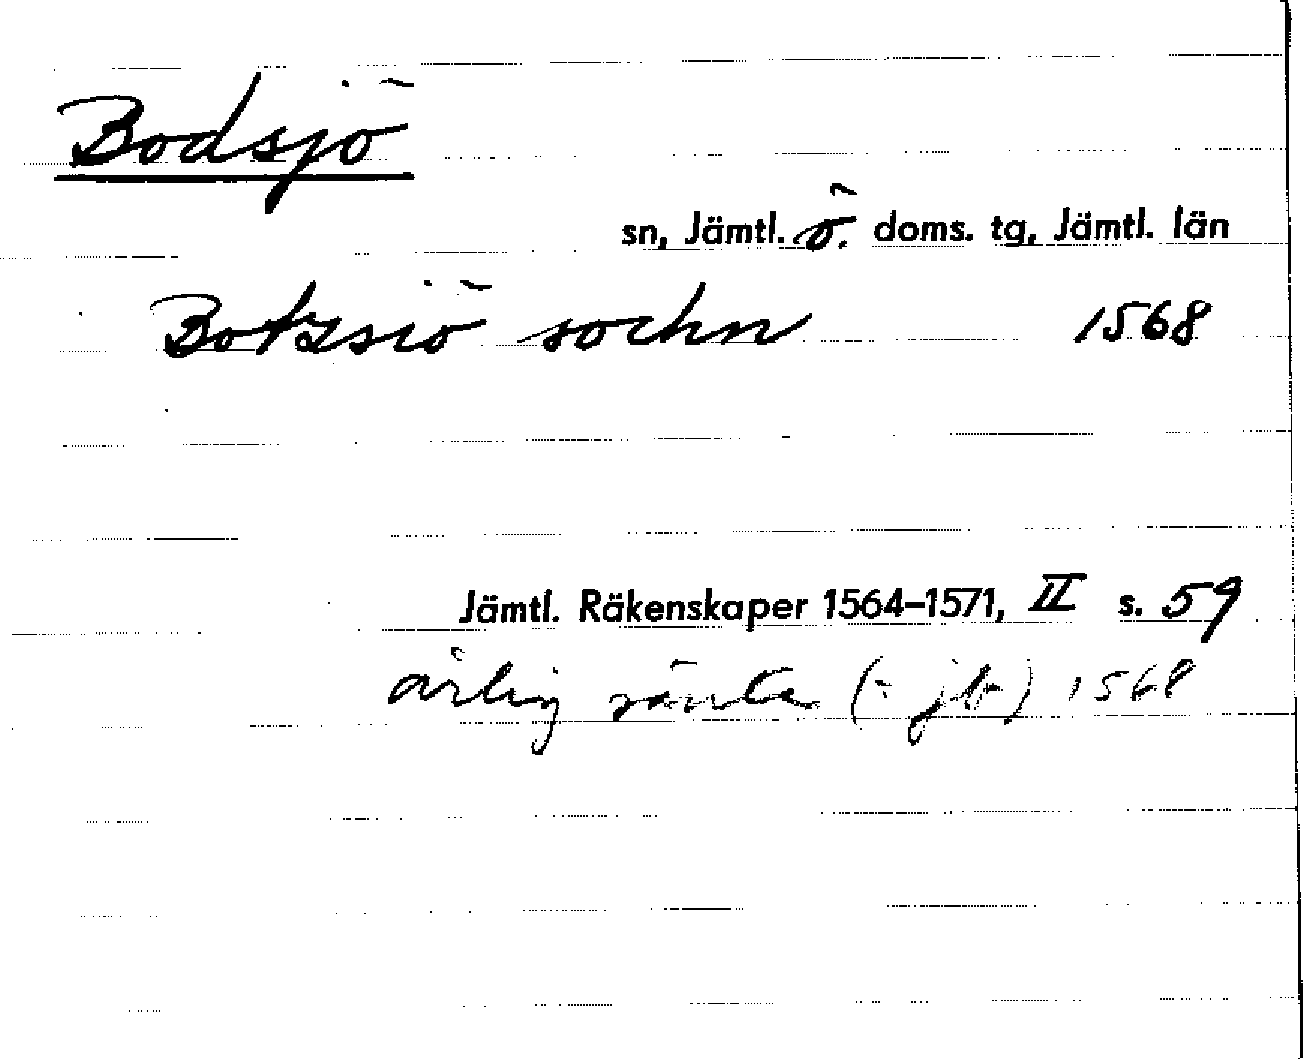 Bodsjö
sn, Jämtl. ö. doms. tg, Jämtl. län
Botzsiö sochn 1568
Jämtl. Räkenskaper 1564–1571, II s. 59
årlig ränta (= jb) 1568